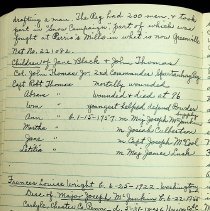 drafting a man. The Reg. had 200 men & took
part in "Snow Campaign" part of which was
fought at Pearis's Mills in what is now Greenville
Nat No. 221892.
Children of Jane Black & John Thomas
Col. John Thomas Jr. 2nd Commander Spartanburg
Capt Robt Thomas mortally wounded
Abram " wounded & died at 96
Wm " youngest helped defend
Ann " b. 1-15-1757 m Maj Joseph
Martha " m Josiah Culbertson
Jane " m Capt Joseph McCool
Letitia " m Maj James Lusk
Frances Louise Wright b. 6-25-1922 Washington
Desc. of Major Joseph McJunkin b. 6-22-1755
Carlisle, Chester Co. Penn. d. 5-31-1846